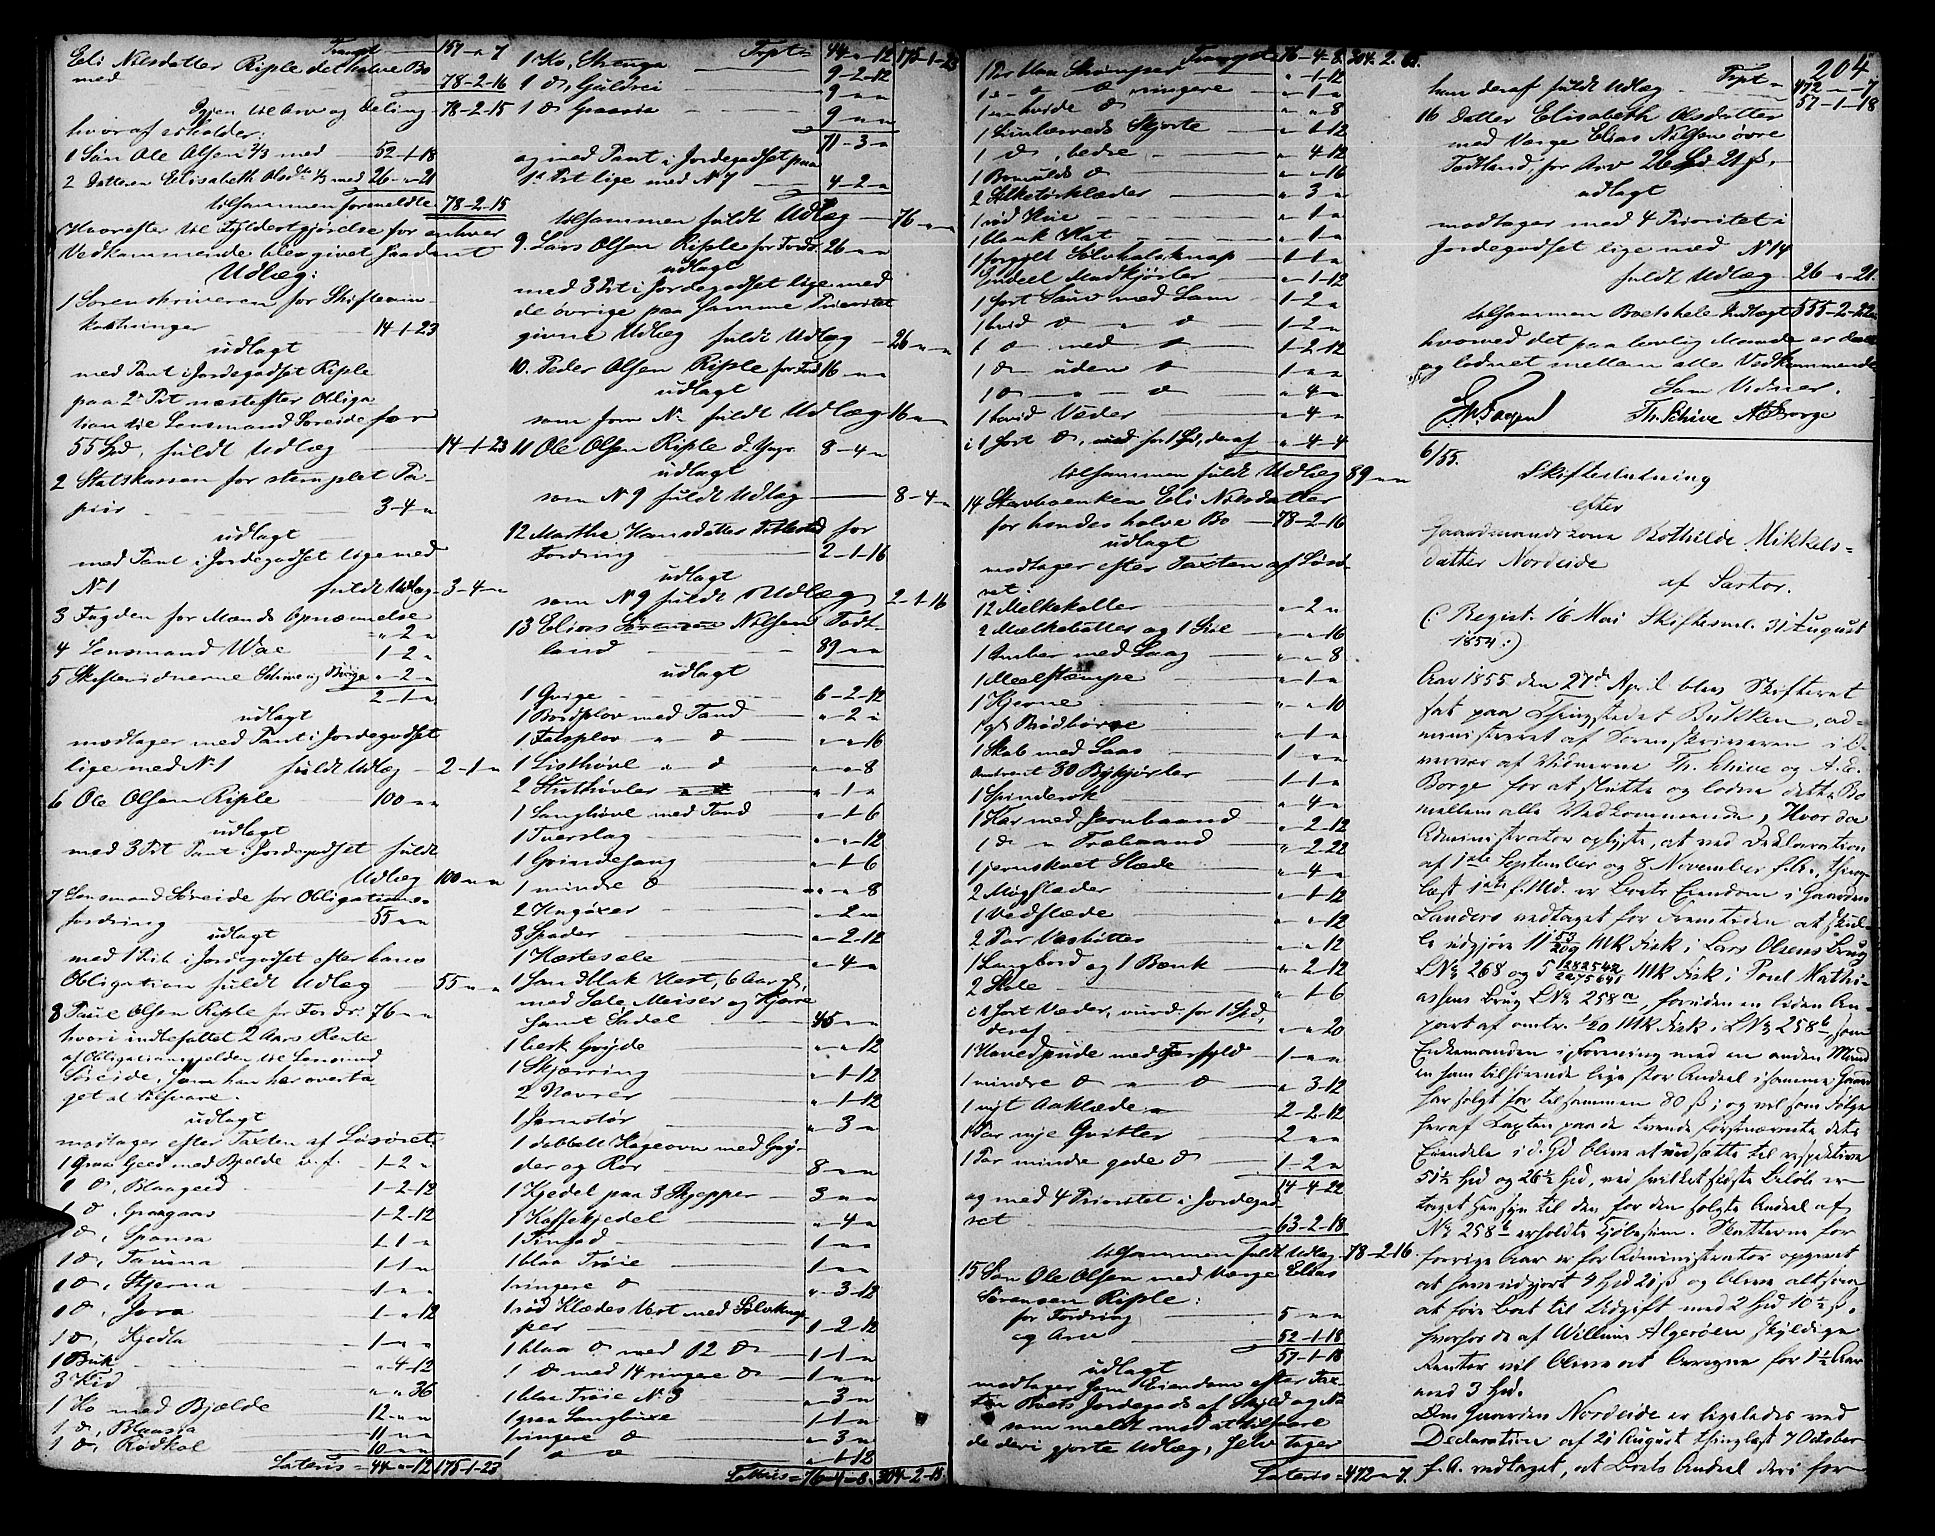 Transpt — 157 " 7
Eli Nilsdatter Riple det halve Bo
med — 78-2-16
Igjen til Arv og Deling 78-2-15
hvoraf erholder:
1 Søn Ole Olsen 2/3 med — 52-1-18
2 Datteren Elisabeth Olsd. 1/3 med 26-"-21
tilsammen formeldte 78-2-15
Hvorefter til Fyldestgjørelse for enhver
Vedkommende blev givet saadant
Udlæg:
1 Sorenskriveren for Skifteom-
kostninger — 14-1-23
udlagt
med Pant i Jordegodset Riple
paa 2 Prt næstefter Obliga
tion til Lensmand Søreide for
55 Spd, fuldt Udlæg — 14-1-23
2 Statskassen for stemplet Pa-
piir — 3-4-"
udlagt
med Pant i Jordegodset lige med
No 1 fuldt Udlæg 3-4-"
3 Fogden for Mænds Opnævnelse
"-2-"
4 Lensmand Wae — 1-2-"
5 Skiftevidnerne Schive og Borge "-2-"
2-1-"
udlagt
modtager med Pant i Jordegodset
lige med No 1 fuldt Udlæg — 2-1-"
6 Ole Olsen Riple — 100-"-"
udlagt
med 3 Prt Pant i Jordegodset fuldt
Udlæg 100-"-"
7 Lensmand Søreide for Obligations-
fordring — 55-"-"
udlagt
med 1 Prt. i Jordegodset efter hans
Obligation fuldt Udlæg — 55-"-"
8 Olsen Riple for Fordr. 76-"-"
hvori indbefattet 2 Aars Rente
af Obligationsgjelden til Lensmand
Søreide, som han har overta
get at tilsvare.
udlagt
modtager efter Taxten af Løsøret:
1 graa Geed med Bjelde — 1-2-"
1 D, Blaageed — 1-2-12
1 D, Graagaas — 1-2-12
1 D, Sponsa — 1-1-"
1 D, — 1-1-"
1 D, Stjerna — 1-"-"
1 D, Jora — 1-"-12
1 D, Kjedla — 1-"-"
1 Buk — "-4-12
3 Kid — "-"-36
1 Ko med Bjælde — 12-"-"
1 D, Blaasia — 11-"-"
1 D, Rødkol — 10-"-"
Lateris = 44-"-12 175-1-23
Trpt = 44-"-12 175-1-23
1 Ko, — 9-2-12
1 D, Guldrei — 9-"-"
1 D Graasia — 9-"-"
71-3-"
og med Pant i Jordegodset paa
1 Prt lige med No 7 — 4-2-"
tilsammen fuldt Udlæg — 76-"-"
9. Lars Olsen Riple for Fordr. 26-"-"
udlagt
med 3 Prt i Jordegodset lige med
de øvrige paa samme Prioritet
givne Udlæg fuldt Udlæg — 26-"-"
10. Peder Olsen Riple for Fod 16-"-"
udlagt
som forr No fuldt Udlæg 16-"-"
11 Ole Olsen Riple d. Yngr. 8-4-"
udlagt
som No 9 fuldt Udlæg — 8-4-"
12 Marthe Hansdatter for
Fordring — 2-1-16
udlagt
som No 9 fuldt Udlæg 2-1-16
13 Elias Nilsen Todt-
land — 89-"-"
udlagt
1 Qvige — 6-2-12
1 Bordplov med Tand — "-2-"
1 Falsplov " D — "-"-16
1 Listhøvl " D — "-"-8
2 Stuthøvler — "-1-"
1 Langhøvl med Tand — "-1-6
1 Tverslag — "-"-12
1 Grindesang — "-1-6
1 mindre D — "-"-8
2 Hugøxer — "-2-"
3 Spader — "-2-12
1 Hæstesele — "-4-"
1 Jordblak Hest, 6 Aar gl,
med Sele Meiser og Kjøre
samt Sadel — 45-"-"
1 læk Gryde — "-"-12
1 Skjærring — "-1-12
2 Navrer — "-1-12
1 Jernstør — "-3-"
1 dobbelt Kageovn med Gry-
der og Rør — 8-"-"
1 Kjedel paa 3 Skjepper — 3-"-"
1 Kaffekjedel — "-4-"
1 Tinfad — 1-"-"
1 blaa Trøie — 1-"-"
1 ringere D — "-3-12
1 rød Klædes Vest med Sølvknap
per — 1-2-12
1 blaa D med 12 D — 1-1-"
1 D med 14 ringere D — 1-"-"
1 blaa Trøie No 3 — "-3-"
1 graa Langbuxe — 1-1-"
1 ringere D — "-3-"
1 D D — "-1-12
Lateris = 76-4-8. 304-2-15.
Transpt 76-4-8. 304-2-15.
1 Par Uln Strømper — "-1-12
1 " D ringere — "-1-"
1 " hvide D — "-"-8
1 Linlærreds Skjorte — "-1-12
1 D, bedre — "-4-12
1 Bomulds D — "-"-16
2 Silketørklæder — "-3-"
1 rød Hue — "-1-"
1 blank Hat — "-1-"
1 forgyldt Sølvhalsknap — 1-1-"
Endeel Madkjørler — "-1-12
1 sort Sauv med Lam — 1-2-"
1 hvid D " D — 1-2-"
1 D med D — 1-2-12
1 D uden D — 1-"-"
1 D " D — "-4-"
1 hvid Væder — "-4-"
i 1 sort D, vurd. for 1 Spd, deraf "-4-4
tilsammen fuldt Udlæg 89-"-"
14 Stervboenken Eli Nilsdatter
for hendes halve Bo — 78-2-16
udlagt
modtager efter Taxten af Løsø-
ret:
12 Melkekoller — "-2-"
2 Melkebøtter og 1 Siil — "-"-16
1 Amber med Laag — "-"-8
1 Meelstampe — "-1-"
1 Kjerne — "-"-10
1 gl Brødkorve — "-1-"
1 Skab med Laas — 1-"-"
Omtrent 30 Bykjørler — 1-1-"
1 Spinderok — "-4-"
1 Kar med Jernbaand — "-2-12
1 D " Træbaand — "-2-22
1 jernskoet Slæde — "-4-"
2 Møgslæder — "-1-12
1 Vedslæde — "-"-12
2 Par Vasbøtter — "-"-12
1 Langbord og 1 Bænk — "-2-12
2 Stole — "-1-6
i 1 sort Væder, vurd. for 1 Spd,
deraf — "-"-20
1 Hovedpude med Forfyld — 1-"-"
1 mindre D " D — "-3-12
1 nyt Aaklæde — 2-2-12
1 Par nye Qvitler — 2-"-"
1 Par mindre gode D — 1-2-"
14-4-22
og med 4 Prioritet i Jordegod
set — 63-2-18
tilsammen fuldt Udlæg 78-2-16.
15 Søn Ole Olsen med Værge Elias
Sørensen Riple:
for Fordring — 5-"-"
og Arv — 52-1-18
57-1-18
udlagt
modtager som Eiendom efter Tax-
ten Boets Jordegods af Skyld og No
som meldt mod at tilsvare
de deri gjorte Udlæg, selv tager
Lateris = 472-"-7.
204
Trpt " 472-"-7
han deraf fuldt Udlæg — 57-1-18
16 Datter Elisabeth Olsdatter
med Værge Elias Nilsen øvre
Todtland, for Arv 26 Spd 21 ß,
udlagt
modtager med 4 Prioritet i
Jordegodset lige med No 14
fuldt Udlæg 26-"-21.
tilsammen Boets hele Indtægt 555-2-22
hvormed det paa lovlig Maade er sluttet
og lodnet mellem alle Vedkommende
Som Vidner.
Th. Schive A E Borge
6/55.
Skifteslutning
efter
Gaardmandskone Bothilde Mikkels-
datter Nordeide
af Sartor.
(: Regist. 16 Mai Skiftesml. 31 August
1854:)
Aar 1855 den 27de April blev Skifteret
sat paa Thingstedet Bukken, ad-
ministreret af Sorenskriveren i O-
vervær af Vidnerne Th. Schive og A. E.
Borge for at slutte og lodne dette Bo
mellem alle Vedkommende, Hvorda
Administrator oplyste, at ved Deklaration
af 1ste September og 8 November f. A., thing-
læst 1ste f. Md. er Boets Eiendom i Gaarden
Landers vedtaget for Fremtiden at skul-
le udgjøre 11 53/209 Mk Fisk i Lars Olsens Brug
LNo 268 og 5 1282542/2275691 Mk Fisk i Poul Mathi-
assens Brug LNo 258a, foruden en liden An-
part af omtr. 1/20 Mk Fisk i LNo 258b, som
Enkemanden i Forening med en anden Mand
en ham tilhørende lige stor Andeel i samme Gaard
har solgt for tilsammen 80 ß; og vil som Følge
heraf Taxten paa de tvende førstnævnte dets
Eiendele i d. Gd blive at udsætte til respektive
51½ Spd og 26½ Spd, ved hvilket sidste Beløb er
taget Hensyn til den for den solgte Andeel af
No 258b erholdte Kjøbesum. Skatterne for
forrige Aar er for Administrator opgivet
at have udgjort 4 Spd 21 ß og blive altsaa
at føre Boet til Udgift med 2 Spd 10½ ß.
hvorhos de af Willum Algerøen skyldige
Renter vil blive at beregne for 1½ Aar
med 3 Spd.
Om Gaarden Nordeide er ligeledes ved
Declaration af 21 August thinglæst 7 October
f. A. vedtaget, at Boets Andeel deri for